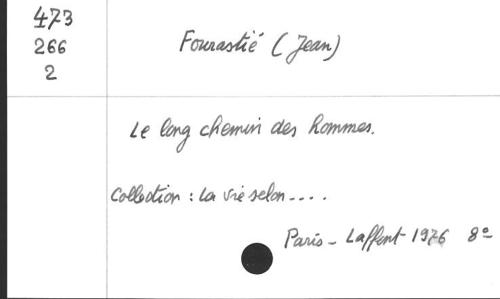 473
266
2
Fourastié (Jean)
Le long chemin des hommes.
Collection : La vie selon....
Paris - Laffont 1976 8°